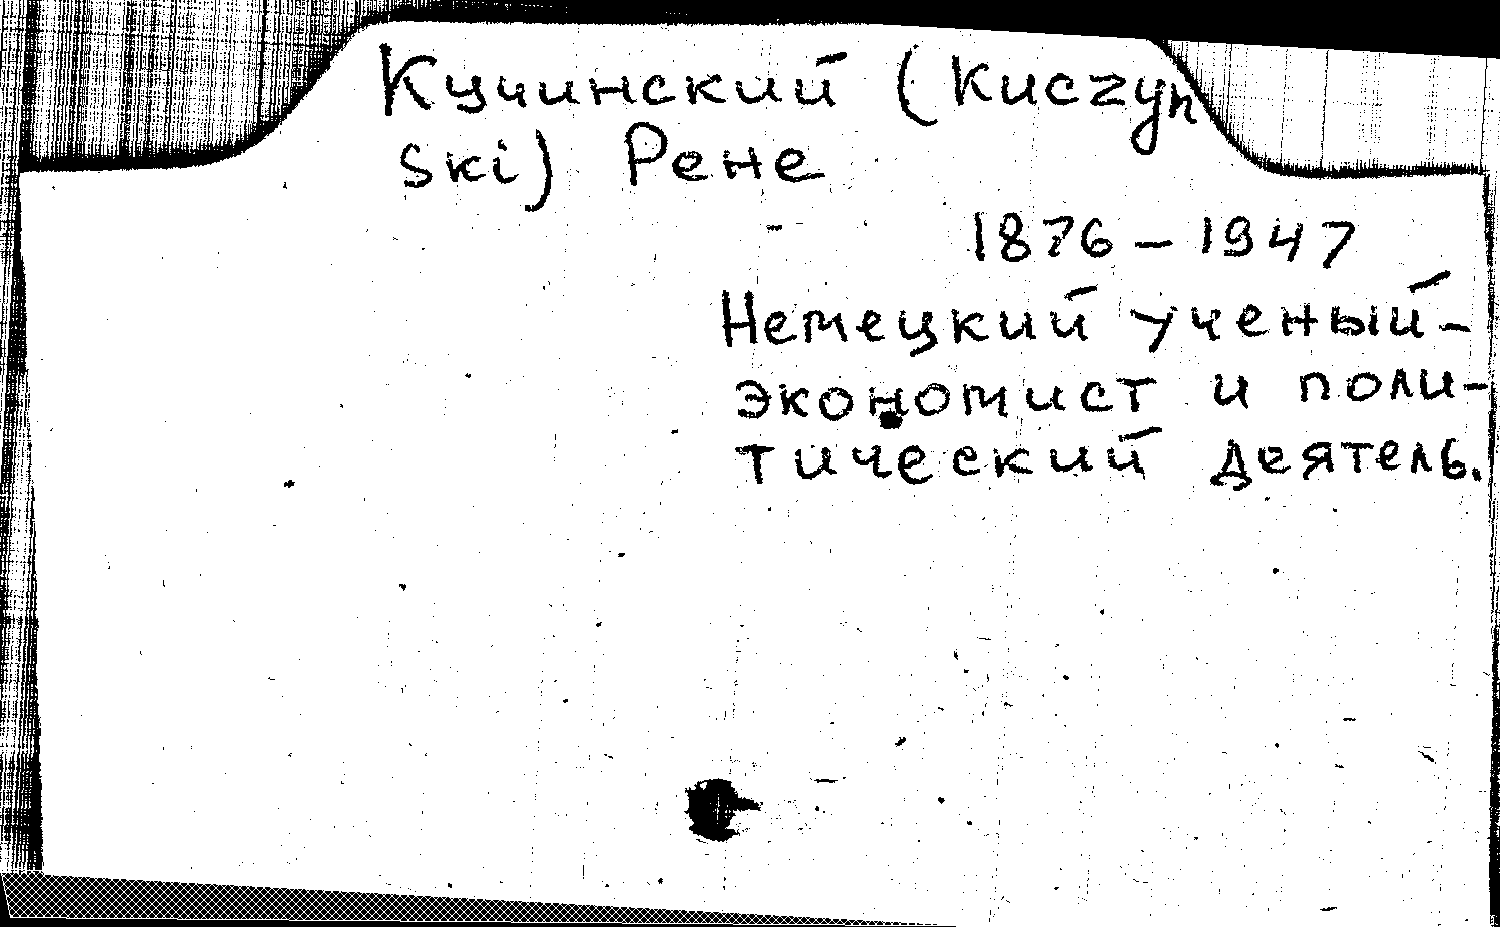 Кучинский (Kuczyn
ski) Рене
1876 – 1947
Немецкий ученый-
экономист и поли-
тический деятель.